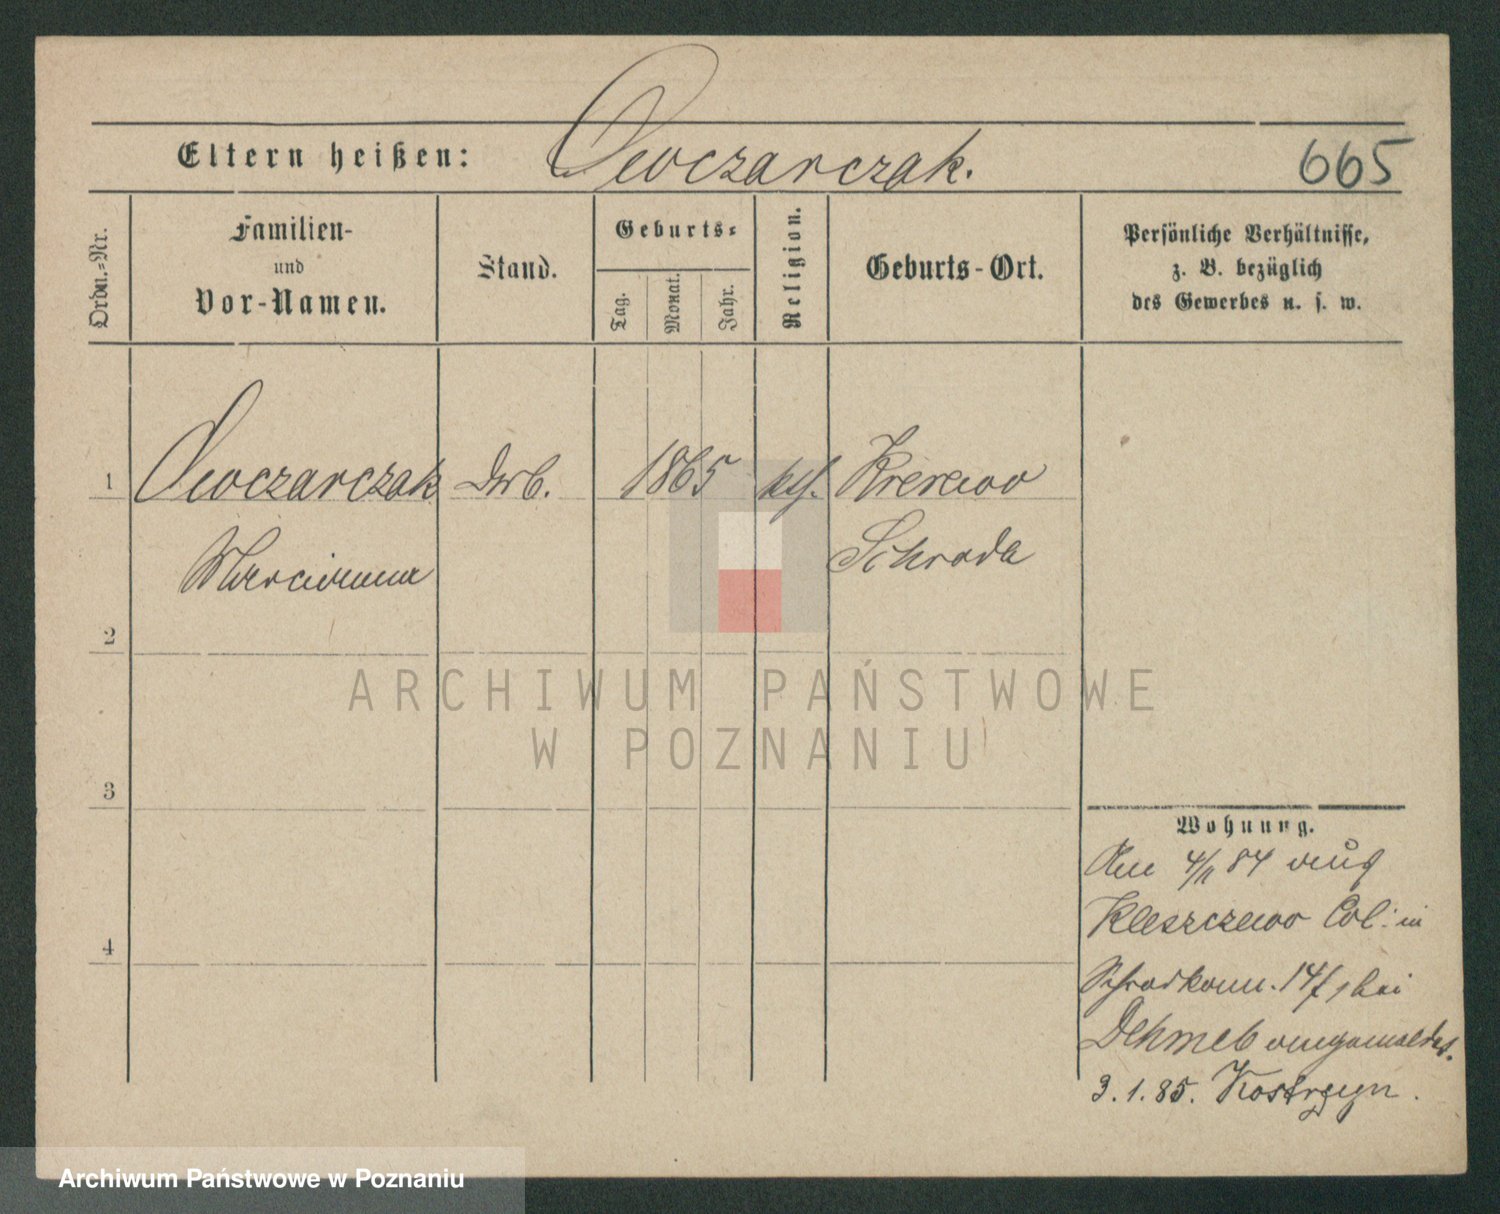 Eltern heißen: Owczarczak. 665
Ordn.-Nr.
Familien-
und
Vor-Namen.
Stand.
Geburts-
Tag.
Monat.
Jahr.
Religion.
Geburts-Ort.
Persönliche Verhältnisse,
z. B. bezüglich
des Gewerbes u. s. w.
1 Owczarczak 1865 kth. Krerowo
Marcianna Schroda
2
ARCHIWUM PAŃSTWOWE
W POZNANIU
3
Wohnung.
Am 84
Kleszczewo Col. in
4
14 bei
Dehmel angemeldet.
3. 1. 85. Kostrzyn.
Archiwum Państwowe w Poznaniu